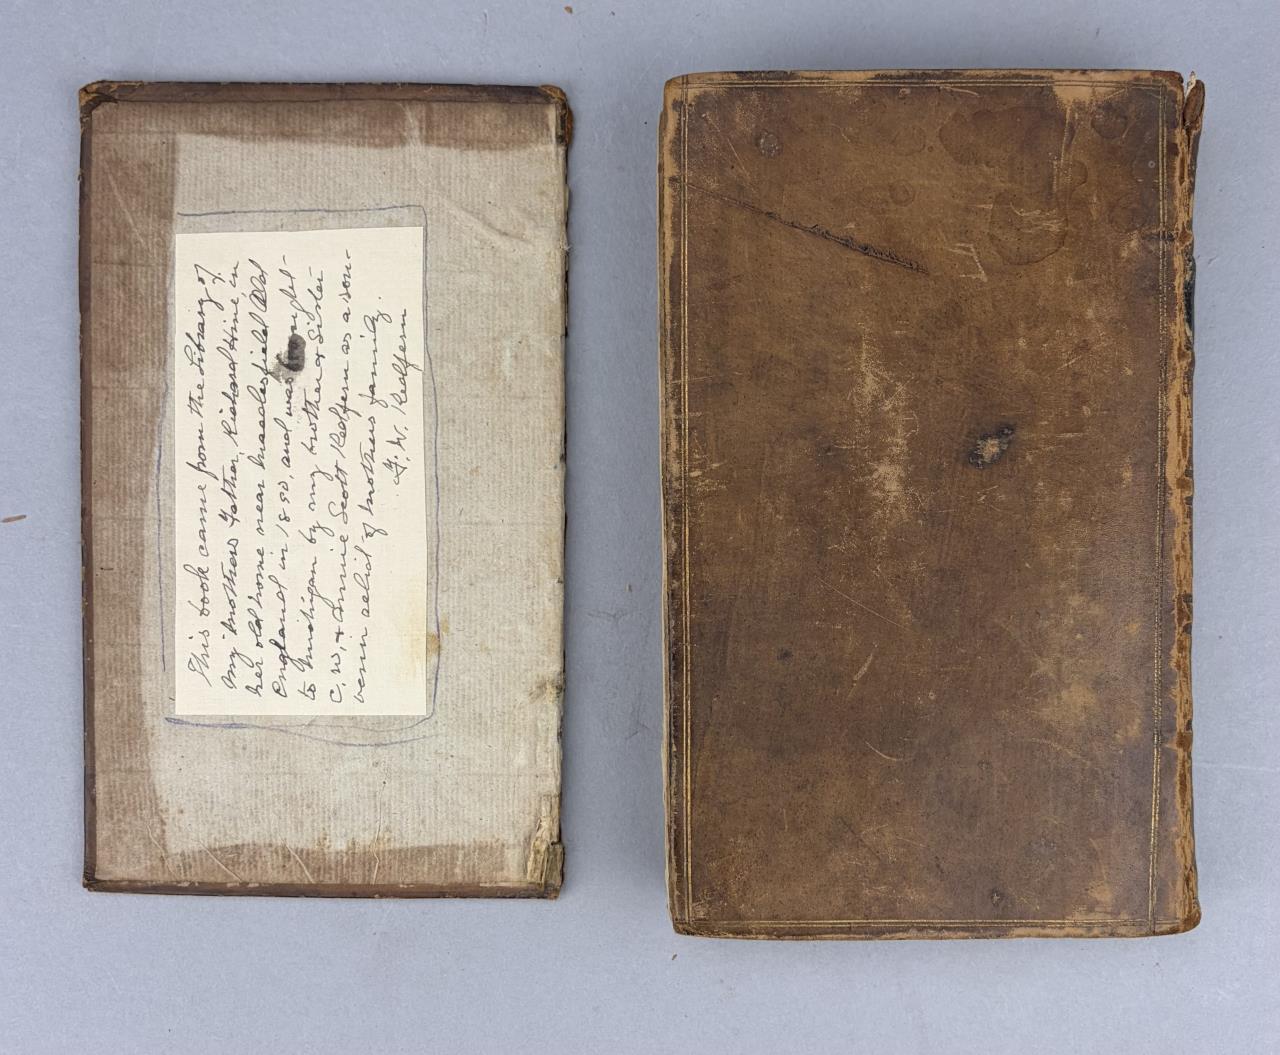 This book came from the Library of
my mothers Father, Richard Hine in
her old home near Macclesfield
England in 1880, and was brought
to Michigan by my brother & Sister
C. W. & Annie Scott Redfern as a sou-
venir of mothers family.
G. W. Redfern